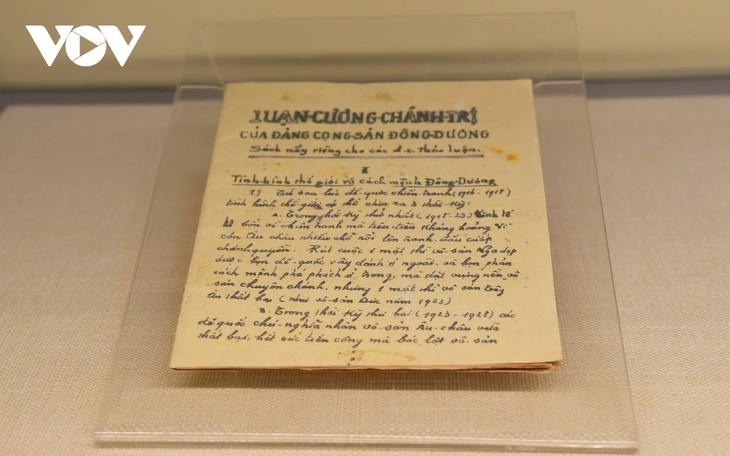 VOV
LUẬN-CƯƠNG-CHÁNH-TRỊ
CỦA ĐẢNG CỌNG-SẢN ĐÔNG-DƯƠNG
Sách nầy riêng cho các đ.c. thảo luận.
I
Tình-hình thế giới và cách mệnh Đông-Dương
1) Từ sau lúc đế quốc chiến tranh (1914-1918)
tình hình thế giới có thể chia ra 3 thời kỳ:
a. Trong thời kỳ thứ nhất (1918-23) kinh tế
tư bổn vì chiến tranh mà tiêu điều khủng hoảng Vì
còn Âu châu nhiều chỗ nổi lên tranh đấu cướp
chánh quyền. Rút cuộc 1 mặt thì vô sản Nga dẹp
được bọn đế quốc vây đánh ở ngoài và bọn phản
cách mệnh phá phách ở trong, mà đặt vững nền vô
sản chuyên chánh, nhưng 1 mặt thì vô sản Tây
Âu thất bại (như vô-sản Đức năm 1923)
B. Trong thời kỳ thứ hai (1923-1928) các
đế quốc chủ-nghĩa nhân vô-sản Âu-châu vừa
thất bại, hết sức tiến công mà bóc lột vô-sản